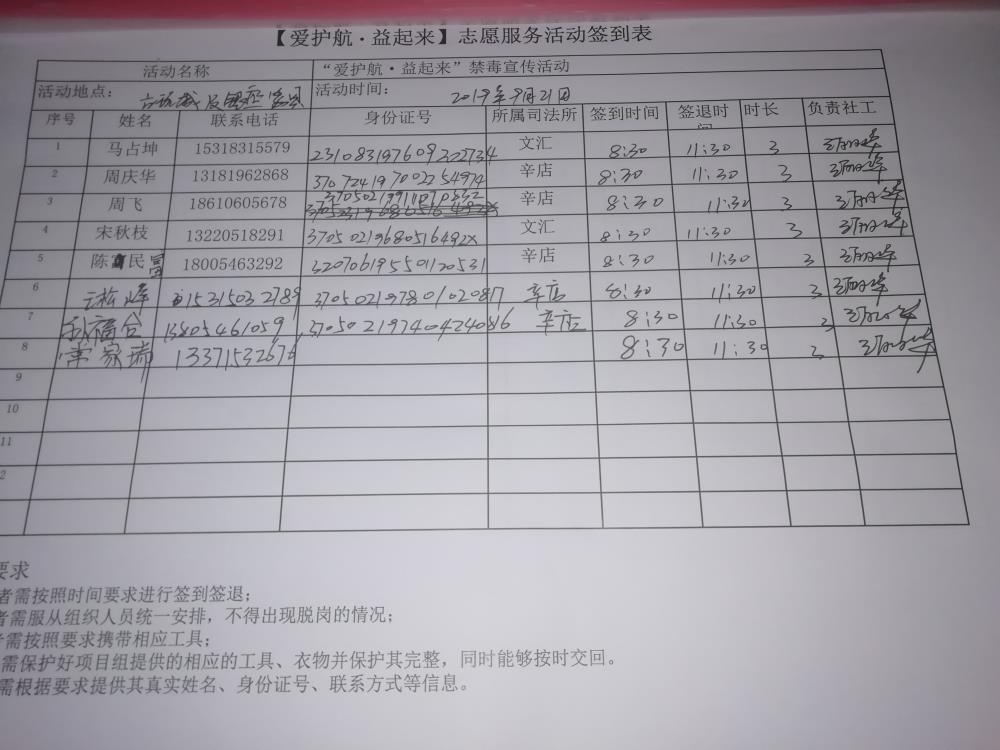 【爱护航·益起来】志愿服务活动签到表
活动名称 “爱护航·益起来”禁毒宣传活动
活动地点： 活动时间： 2019年9月21日
序号 姓名 联系电话 身份证号 所属司法所 签到时间 签退时间 时长 负责社工
1 马占坤 15318315579 文汇 8:30 11:30 3
2 周庆华 13181962868 辛店 8:30 11:30 3
3 周飞 18610605678 辛店 8:30 11:30 3
4 宋秋枝 13220518291 37050219680516492X 文汇 8:30 11:30 3
5 陈富民 18005463292 320706195501120531 辛店 8:30 11:30 3
6 峰 15315032789 370502197801020817 辛店 8:30 11:30 3
7 13805461059 370502197404424086 辛店 8:30 11:30 3
8 常家瑞 13371532676 8:30 11:30 3
9
10
11
2
要求
者需按照时间要求进行签到签退；
者需服从组织人员统一安排，不得出现脱岗的情况；
者需按照要求携带相应工具；
需保护好项目组提供的相应的工具、衣物并保护其完整，同时能够按时交回。
需根据要求提供其真实姓名、身份证号、联系方式等信息。